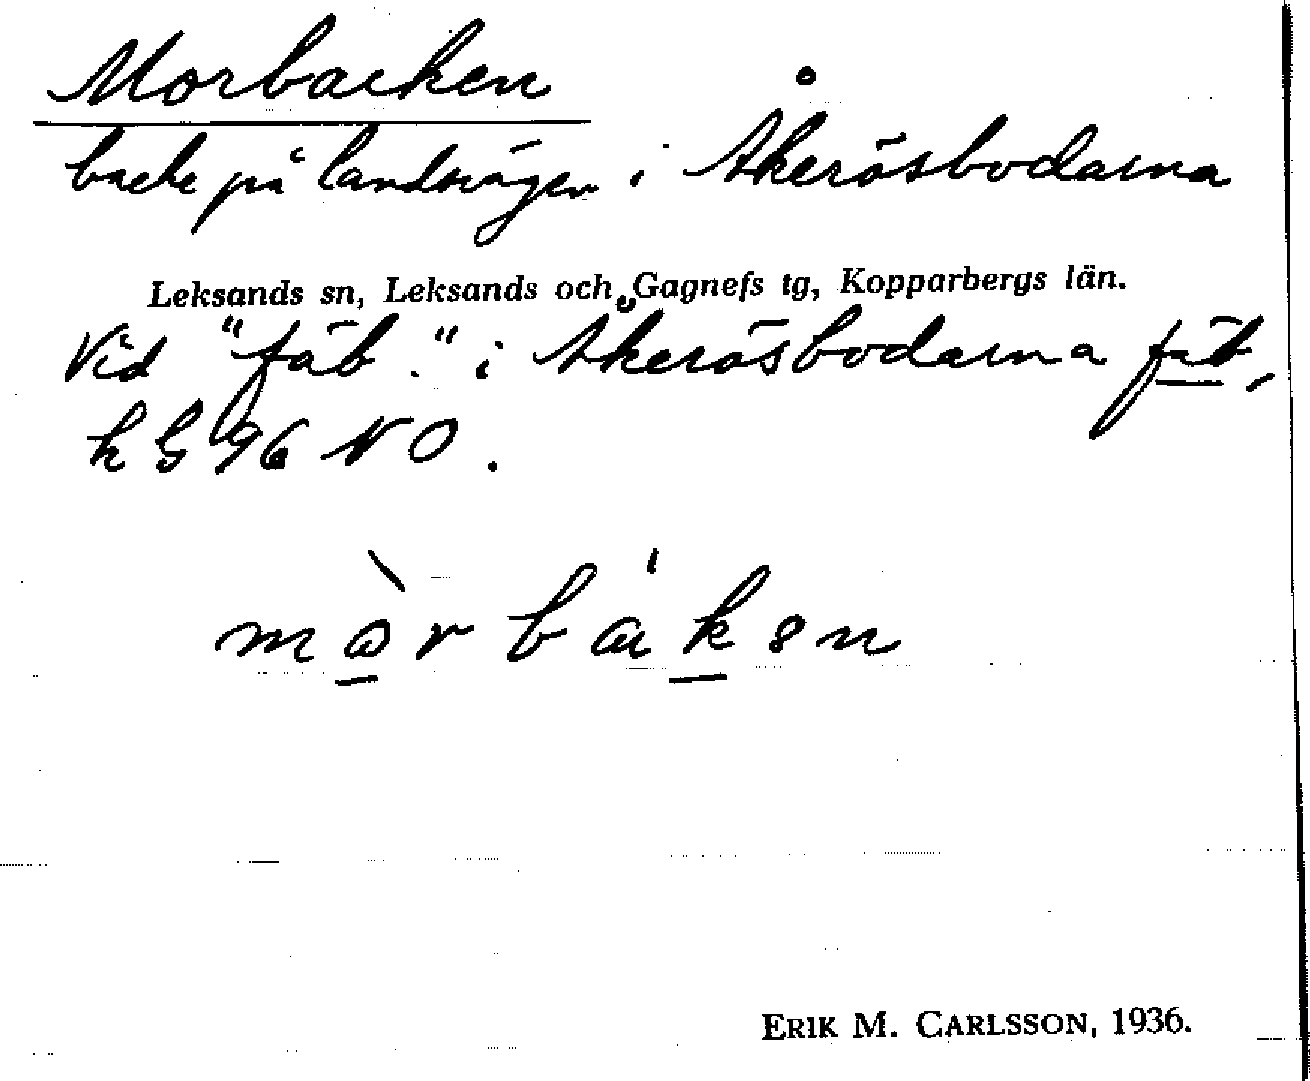 Morbacken
backe på landsvägen i Åkerösbodarna
Leksands sn, Leksands och Gagnefs tg, Kopparbergs län.
Vid "fäb." i Åkerösbodarna fäb,
k G 96 NO.
mòrbákən
ERIK M. CARLSSON, 1936.